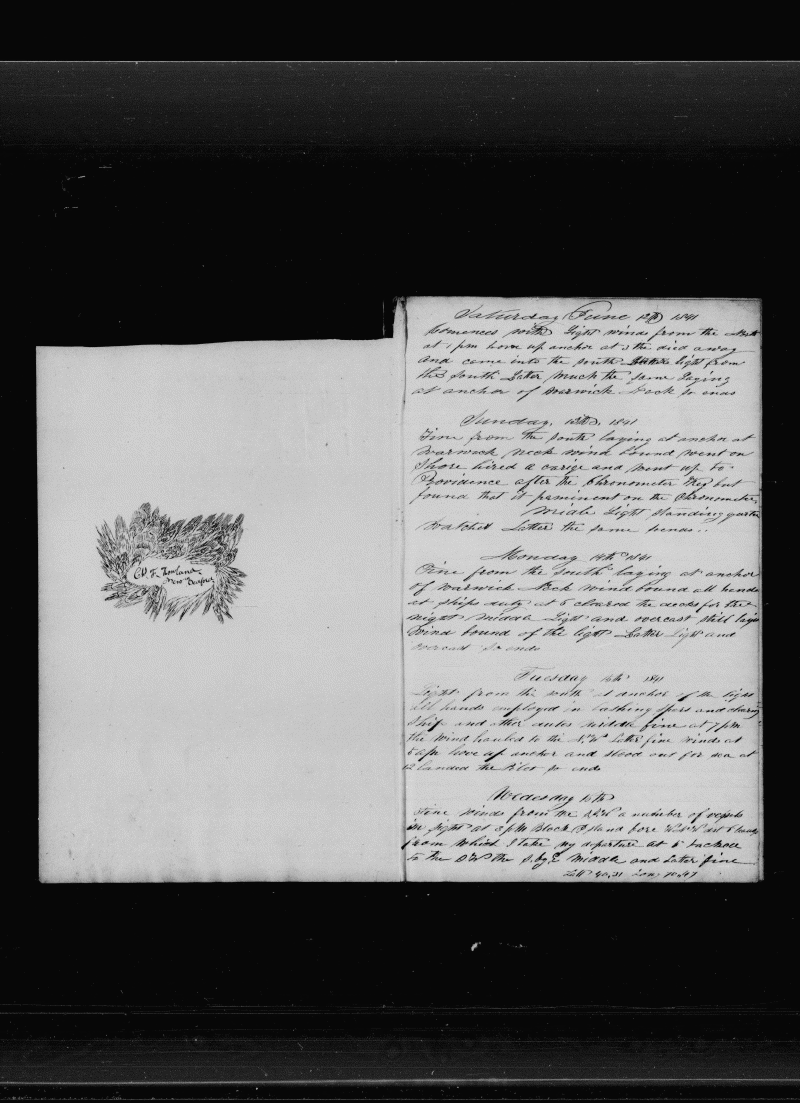 F. Howland
New
Saturday June 12th 1841
Comences with Light winds from the
at 1 pm hove up anchor at 3 the died away
and came into the south light from
the South Later Much the same Laying
at anchor of Warwick Neck So ends
Sunday, 13th, 1841
Fine from the South laying at anchor at
Warwick neck wind bound went on
Shore hired a carige and went up to
Providence after the Chronometer They but
found that it perminent on the Chronometer,
Midle Light Standing quarter
Watches Latter the same so ends
Monday 14th 1841
Fine from the South laying at anchor
of Warwick Neck wind bound all hands
at ships duty at 6 cleared the decks for the
night Middle Light and overcast still laying
Wind bound of the light Latter Light and
overcast So ends
Tuesday 15th 1841
Light from the south at anchor of the light
all hands employed in lashing spars and
Ship and other duties Middle fine at 7 pm
the wind hauled to the N.W. Later fine winds at
6 am hove up anchor and stood out for sea at
12 landed the Pilot So ends
Wedesday 16th
Fine winds from the a number of vessels
in sight at 3 pm Block Island bore dist
from Which I take my departure at 6
to the the S. by E Middle and Later fine
Latt 40,31 Lon 70,47